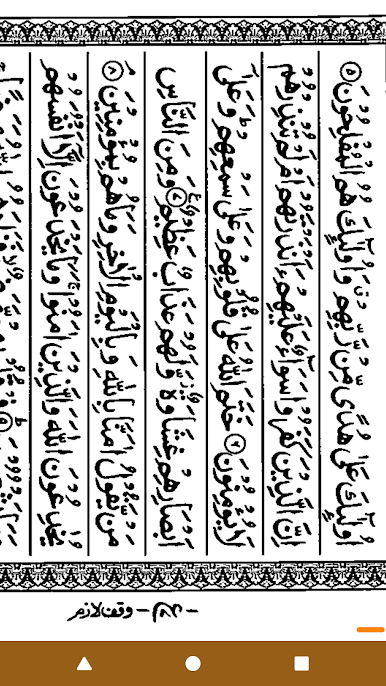 اُولٰٓئِكَ عَلٰى هُدًى مِّنْ رَّبِّهِمْ ۗ وَاُولٰٓئِكَ هُمُ الْمُفْلِحُوْنَ ۵
اِنَّ الَّذِيْنَ كَفَرُوْا سَوَآءٌ عَلَيْهِمْ ءَاَنْذَرْتَهُمْ اَمْ لَمْ تُنْذِرْهُمْ
لَا يُؤْمِنُوْنَ ۶ خَتَمَ اللّٰهُ عَلٰى قُلُوْبِهِمْ وَعَلٰى سَمْعِهِمْ ؕ وَعَلٰٓى
اَبْصَارِهِمْ غِشَاوَةٌ ۫ وَّلَهُمْ عَذَابٌ عَظِيْمٌ ۷ وَمِنَ النَّاسِ
مَنْ يَّقُوْلُ اٰمَنَّا بِاللّٰهِ وَبِالْيَوْمِ الْاٰخِرِ وَمَا هُمْ بِمُؤْمِنِيْنَ ۸
يُخٰدِعُوْنَ اللّٰهَ وَالَّذِيْنَ اٰمَنُوْا ۚ وَمَا يَخْدَعُوْنَ اِلَّآ اَنْفُسَهُمْ
وقف لازم